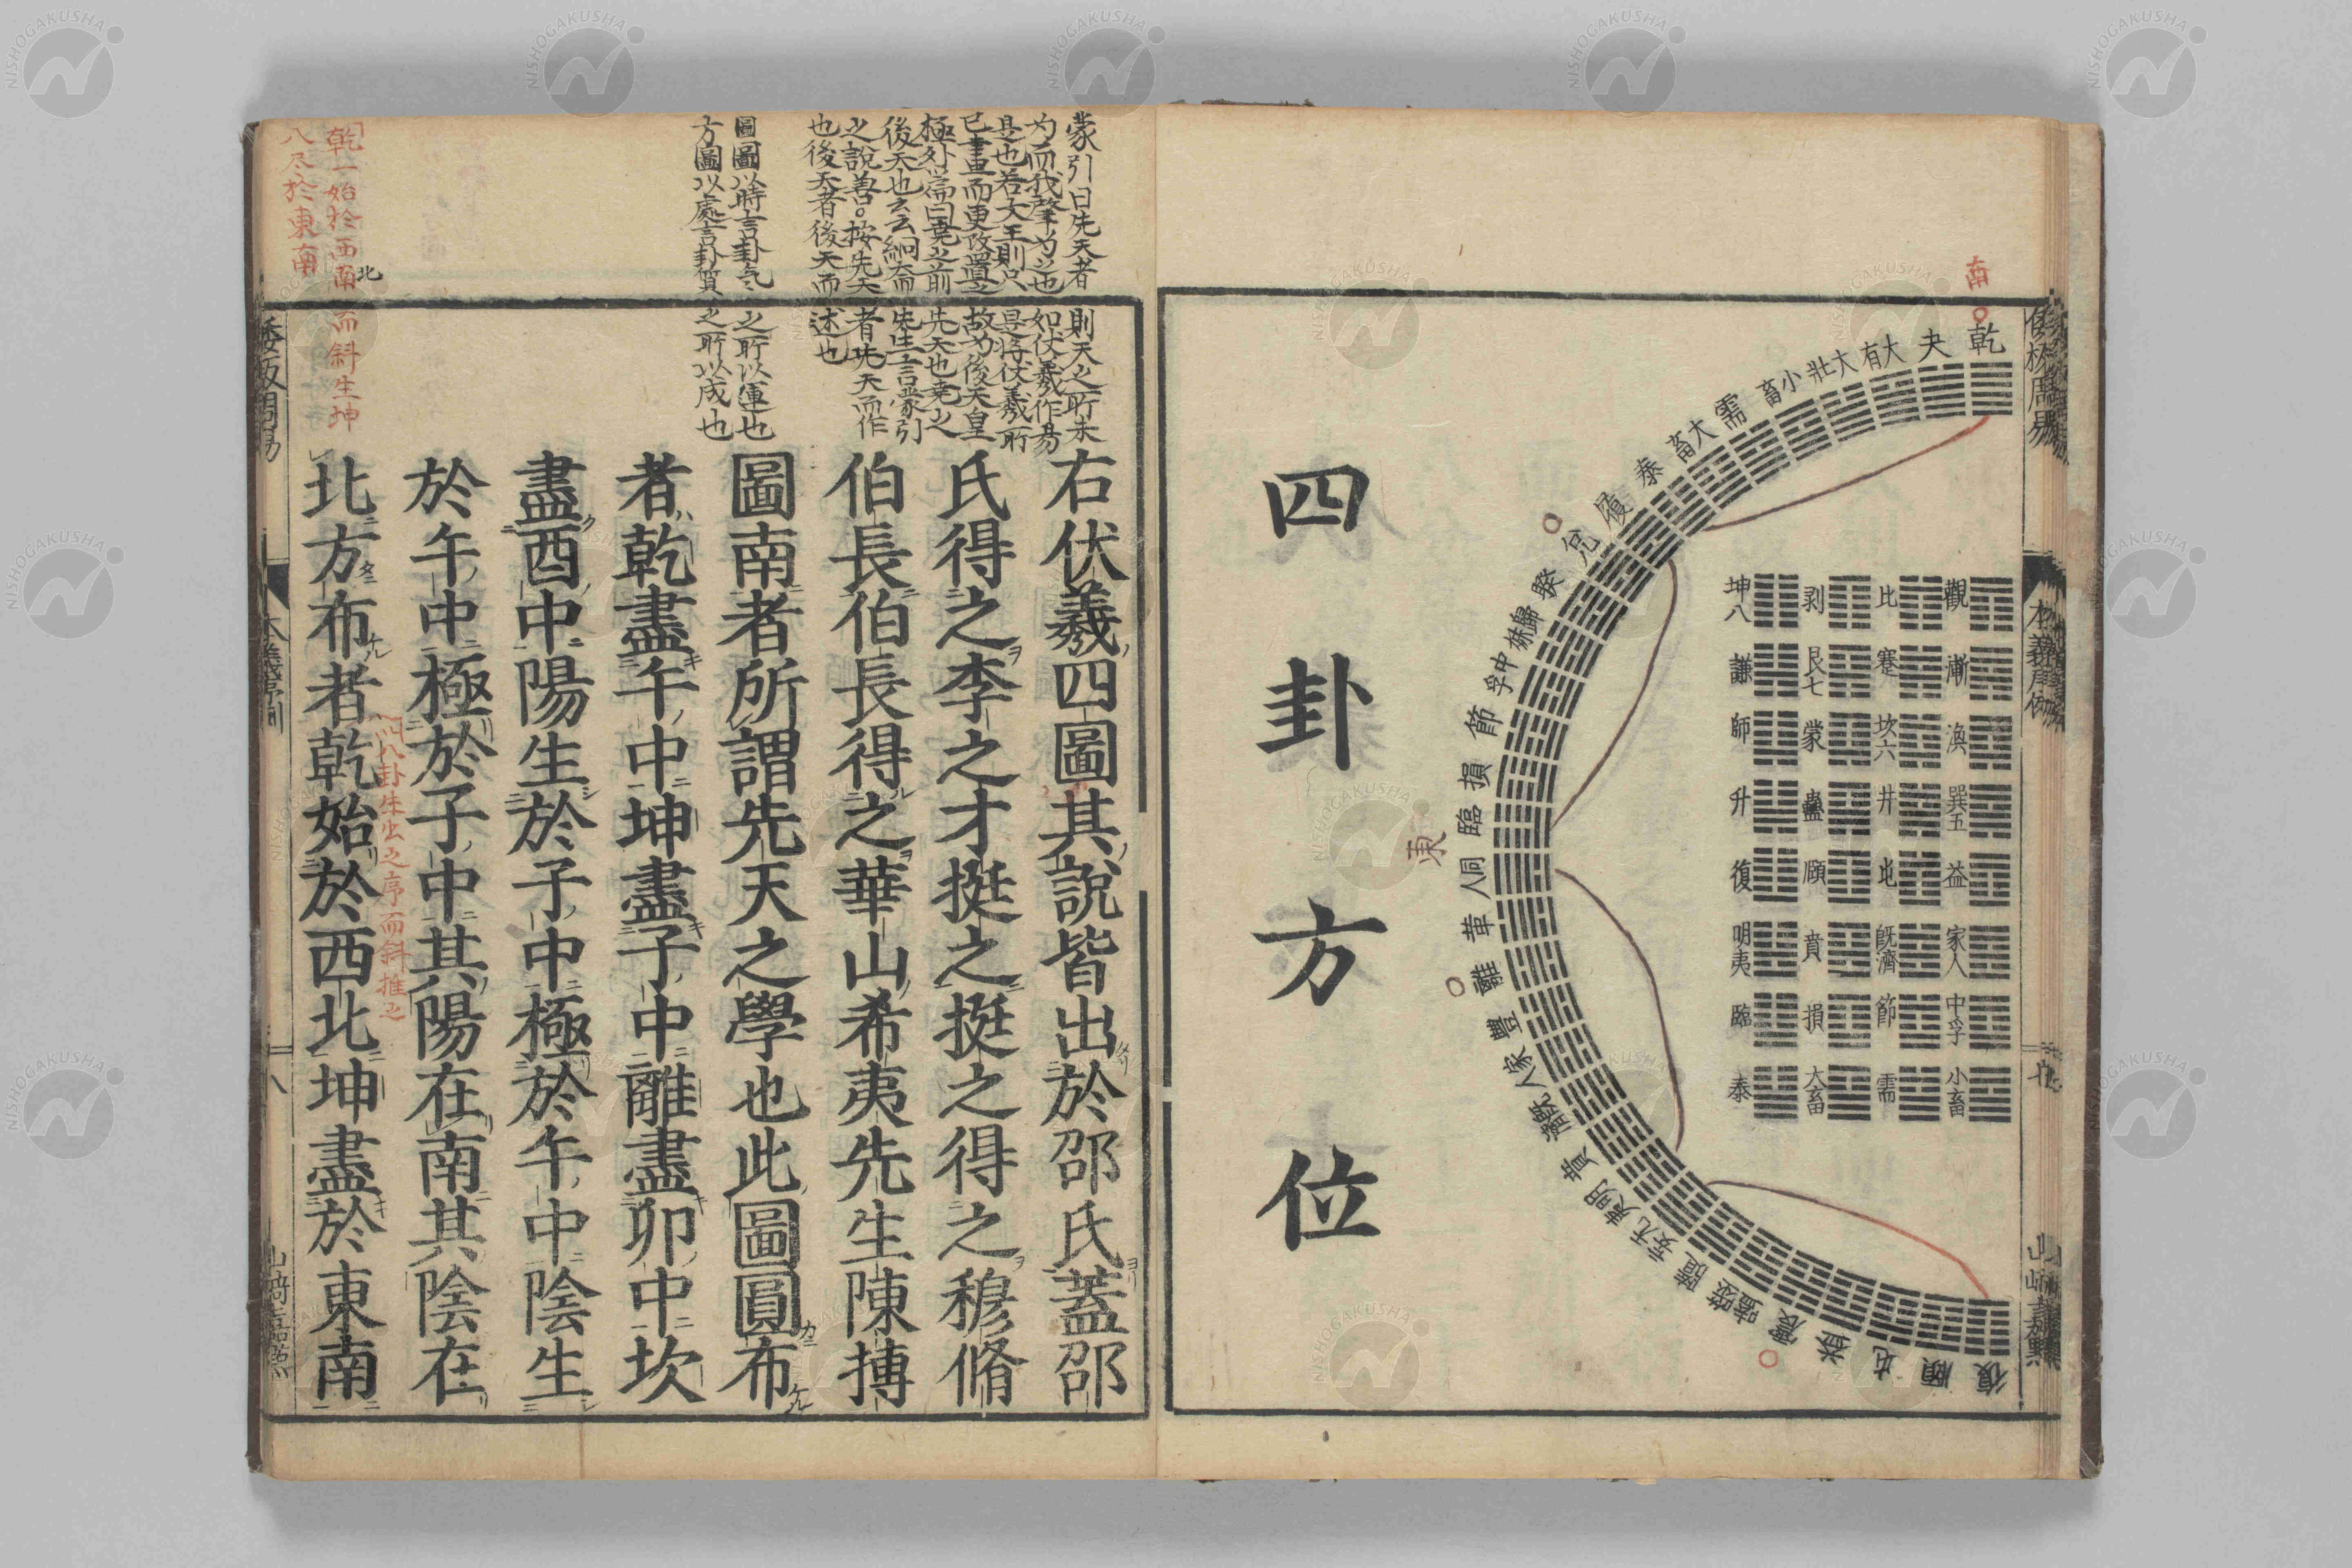 南
乾
夬
大有
大壯
小畜
需
大畜
泰
履
兌
睽
歸妹
中孚
節
損
臨
同人
革
離
豐
家人
既濟
賁
明夷
无妄
隨
噬嗑
震
益
屯
頤
復
東
觀
比
剥
坤八
漸
蹇
艮七
謙
渙
坎六
蒙
師
巽五
井
蠱
升
益
屯
頤
復
家人
既濟
賁
明夷
中孚
節
損
臨
小畜
需
大畜
泰
四卦方位
右伏羲四圖其說皆出於邵氏蓋邵
氏得之李之才挺之挺之得之穆脩
伯長伯長得之華山希夷先生陳摶
圖南者所謂先天之學也此圖圓布
者乾盡午中坤盡子中離盡卯中坎
盡酉中陽生於子中極於午中陰生
於午中極於子中其陽在南其陰在
北方布者乾始於西北坤盡於東南
蒙引曰先天者則天之所未
為而我肇為之也如伏羲作易
是也若文王則只是將伏羲所
已畫而更改置之故為後天皇
極外篇曰堯之前先天也堯之
後天也云云絅斎先生言蒙引
之說善。按先天者先天而作
也後天者後天而述也
圓圖以時言卦氣之所以運也
方圖以處言卦質之所以成也
乾一始於西南北而斜生坤
八尽於東南
以八卦生出之序而斜推之
八
NISHOGAKUSHA